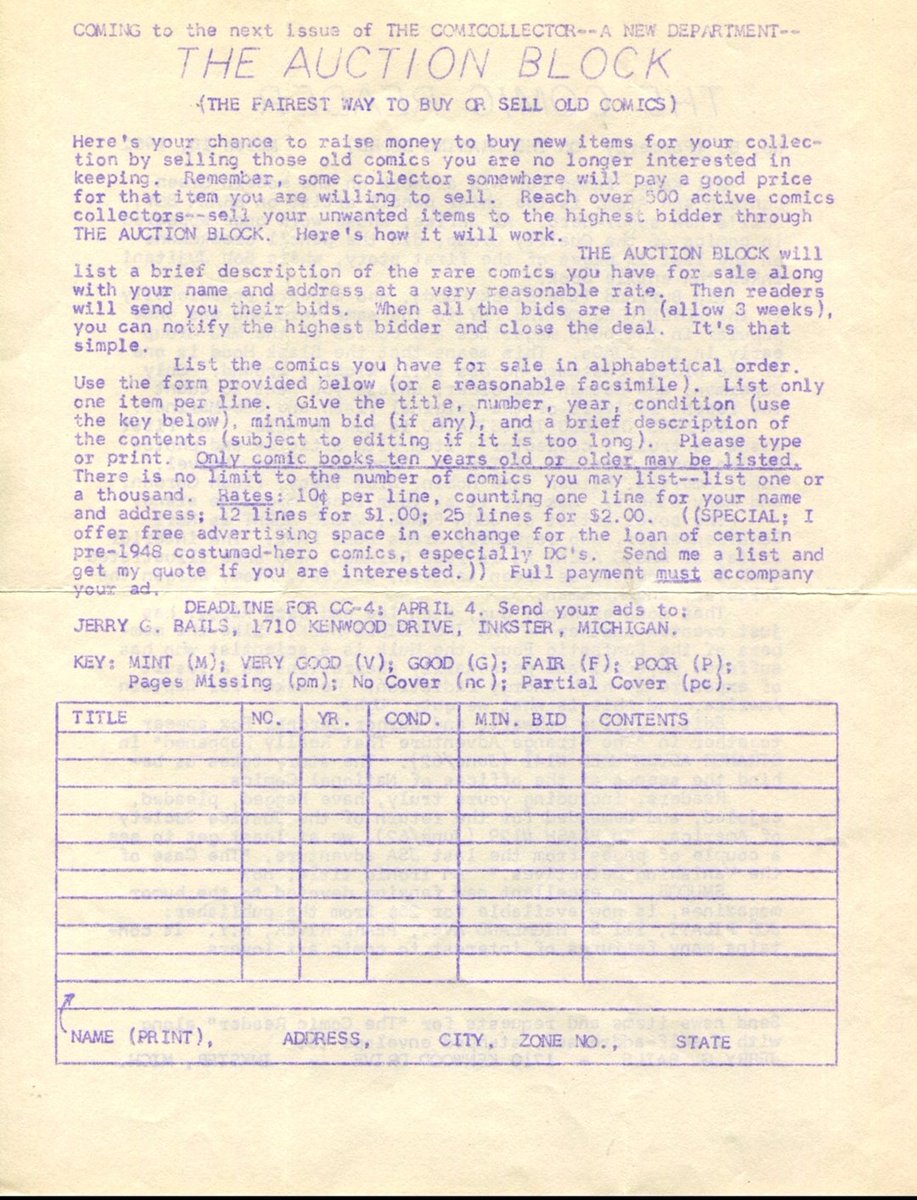 COMING to the next issue of THE COMICOLLECTOR--A NEW DEPARTMENT--
THE AUCTION BLOCK
(THE FAIREST WAY TO BUY OR SELL OLD COMICS)
Here's your chance to raise money to buy new items for your collec-
tion by selling those old comics you are no longer interested in
keeping. Remember, some collector somewhere will pay a good price
for that item you are willing to sell. Reach over 500 active comics
collectors--sell your unwanted items to the highest bidder through
THE AUCTION BLOCK. Here's how it will work.
THE AUCTION BLOCK will
list a brief description of the rare comics you have for sale along
with your name and address at a very reasonable rate. Then readers
will send you their bids. When all the bids are in (allow 3 weeks),
you can notify the highest bidder and close the deal. It's that
simple.
List the comics you have for sale in alphabetical order.
Use the form provided below (or a reasonable facsimile). List only
one item per line. Give the title, number, year, condition (use
the key below), minimum bid (if any), and a brief description of
the contents (subject to editing if it is too long). Please type
or print. Only comic books ten years old or older may be listed.
There is no limit to the number of comics you may list--list one or
a thousand. Rates: 10¢ per line, counting one line for your name
and address; 12 lines for $1.00; 25 lines for $2.00. ((SPECIAL: I
offer free advertising space in exchange for the loan of certain
pre-1948 costumed-hero comics, especially DC's. Send me a list and
get my quote if you are interested.)) Full payment must accompany
your ad.
DEADLINE FOR CC-4: APRIL 4. Send your ads to:
JERRY G. BAILS, 1710 KENWOOD DRIVE, INKSTER, MICHIGAN.
KEY: MINT (M); VERY GOOD (V); GOOD (G); FAIR (F); POOR (P);
Pages Missing (pm); No Cover (nc); Partial Cover (pc).
TITLE NO. YR. COND. MIN. BID CONTENTS
NAME (PRINT), ADDRESS, CITY, ZONE NO., STATE